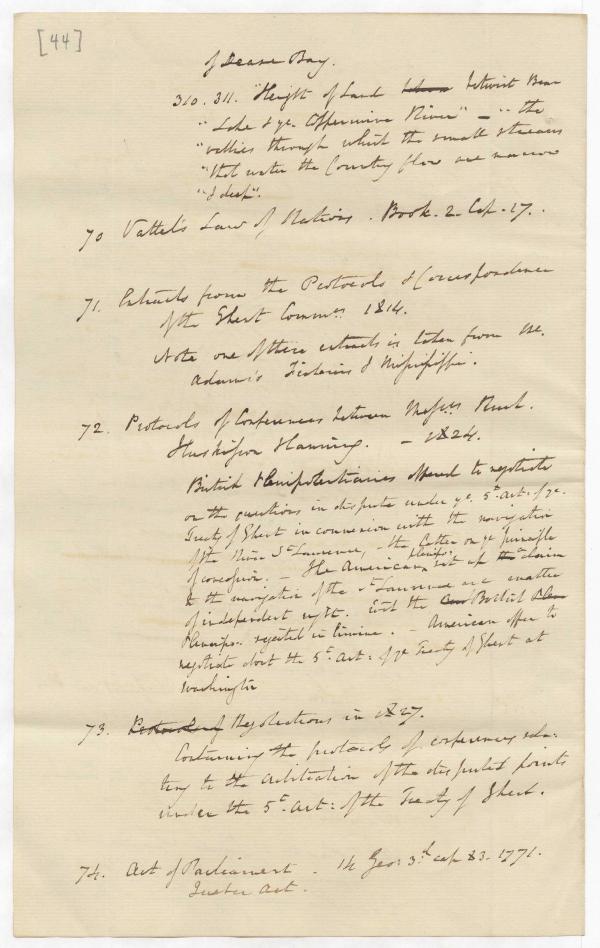 [44]
of Dease Bay.
310. 311. "Height of Land betwixt Bear
"Lake & ye. Coppermine River" – "the
"vallies through which the small streams
"that water the Country flow are narrow
"& deep".
70 Vattel's Law of Nations. Book. 2. Cap. 17.
71. Extracts from the Protocols & Correspondence
of the Ghent Commrs. 1814.
Note one of these extracts is taken from Mr.
Adams's Fisheries & Mississippi.
72. Protocols of Conferences between Messrs. Rush.
Huskisson & Canning. – 1824.
British Plenipotentiaries offered to negotiate
on the questions in dispute under ye. 5t. Art: of ye.
Treaty of Ghent in connexion with the navigation
of the River St. Lawrence, – the latter on ye principle
of concession. – The American Plenipos. set up the claim
to the navigation of the St. Lawrence as a matter
of independent right. but the British
Plenipos. rejected in limine. – American offer to
negotiate abot the 5t. Art: of ye Treaty of Ghent at
Washington
73. Protocols of Negotiations in 1827.
Containing the protocols of conferences rela-
ting to the arbitration of the disputed points
under the 5t. Art: of the Treaty of Ghent.
74. Act of Parliament. 14 Geo: 3d. cap 83. 1771.
Quebec Act.